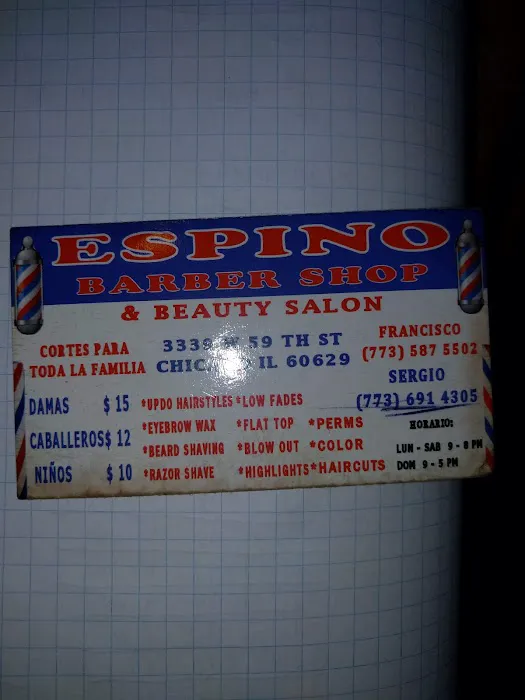 ESPINO
BARBER SHOP
& BEAUTY SALON
CORTES PARA
TODA LA FAMILIA
3339 W 59 TH ST
CHICAGO IL 60629
FRANCISCO
(773) 587 5502
SERGIO
(773) 691 4305
DAMAS $ 15
CABALLEROS $ 12
NIÑOS $ 10
*UPDO HAIRSTYLES *LOW FADES
*EYEBROW WAX *FLAT TOP *PERMS
*BEARD SHAVING *BLOW OUT *COLOR
*RAZOR SHAVE *HIGHLIGHTS *HAIRCUTS
HORARIO:
LUN - SAB 9 - 8 PM
DOM 9 - 5 PM